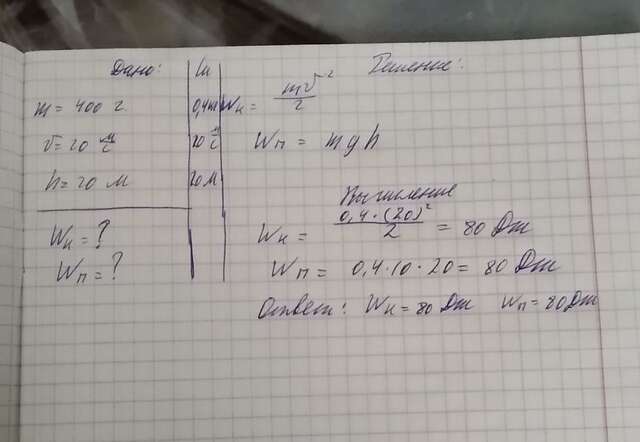 Дано:
Си
Решение:
m = 400 г
0,4
Wк = mv²/2
v = 20 м/с
20 м/с
Wп = mgh
h = 20 м
20 м
Wк = ?
Wп = ?
Вычисление
Wк = 0,4 · (20)²/2 = 80 Дж
Wп = 0,4 · 10 · 20 = 80 Дж
Ответ: Wк = 80 Дж Wп = 80 Дж